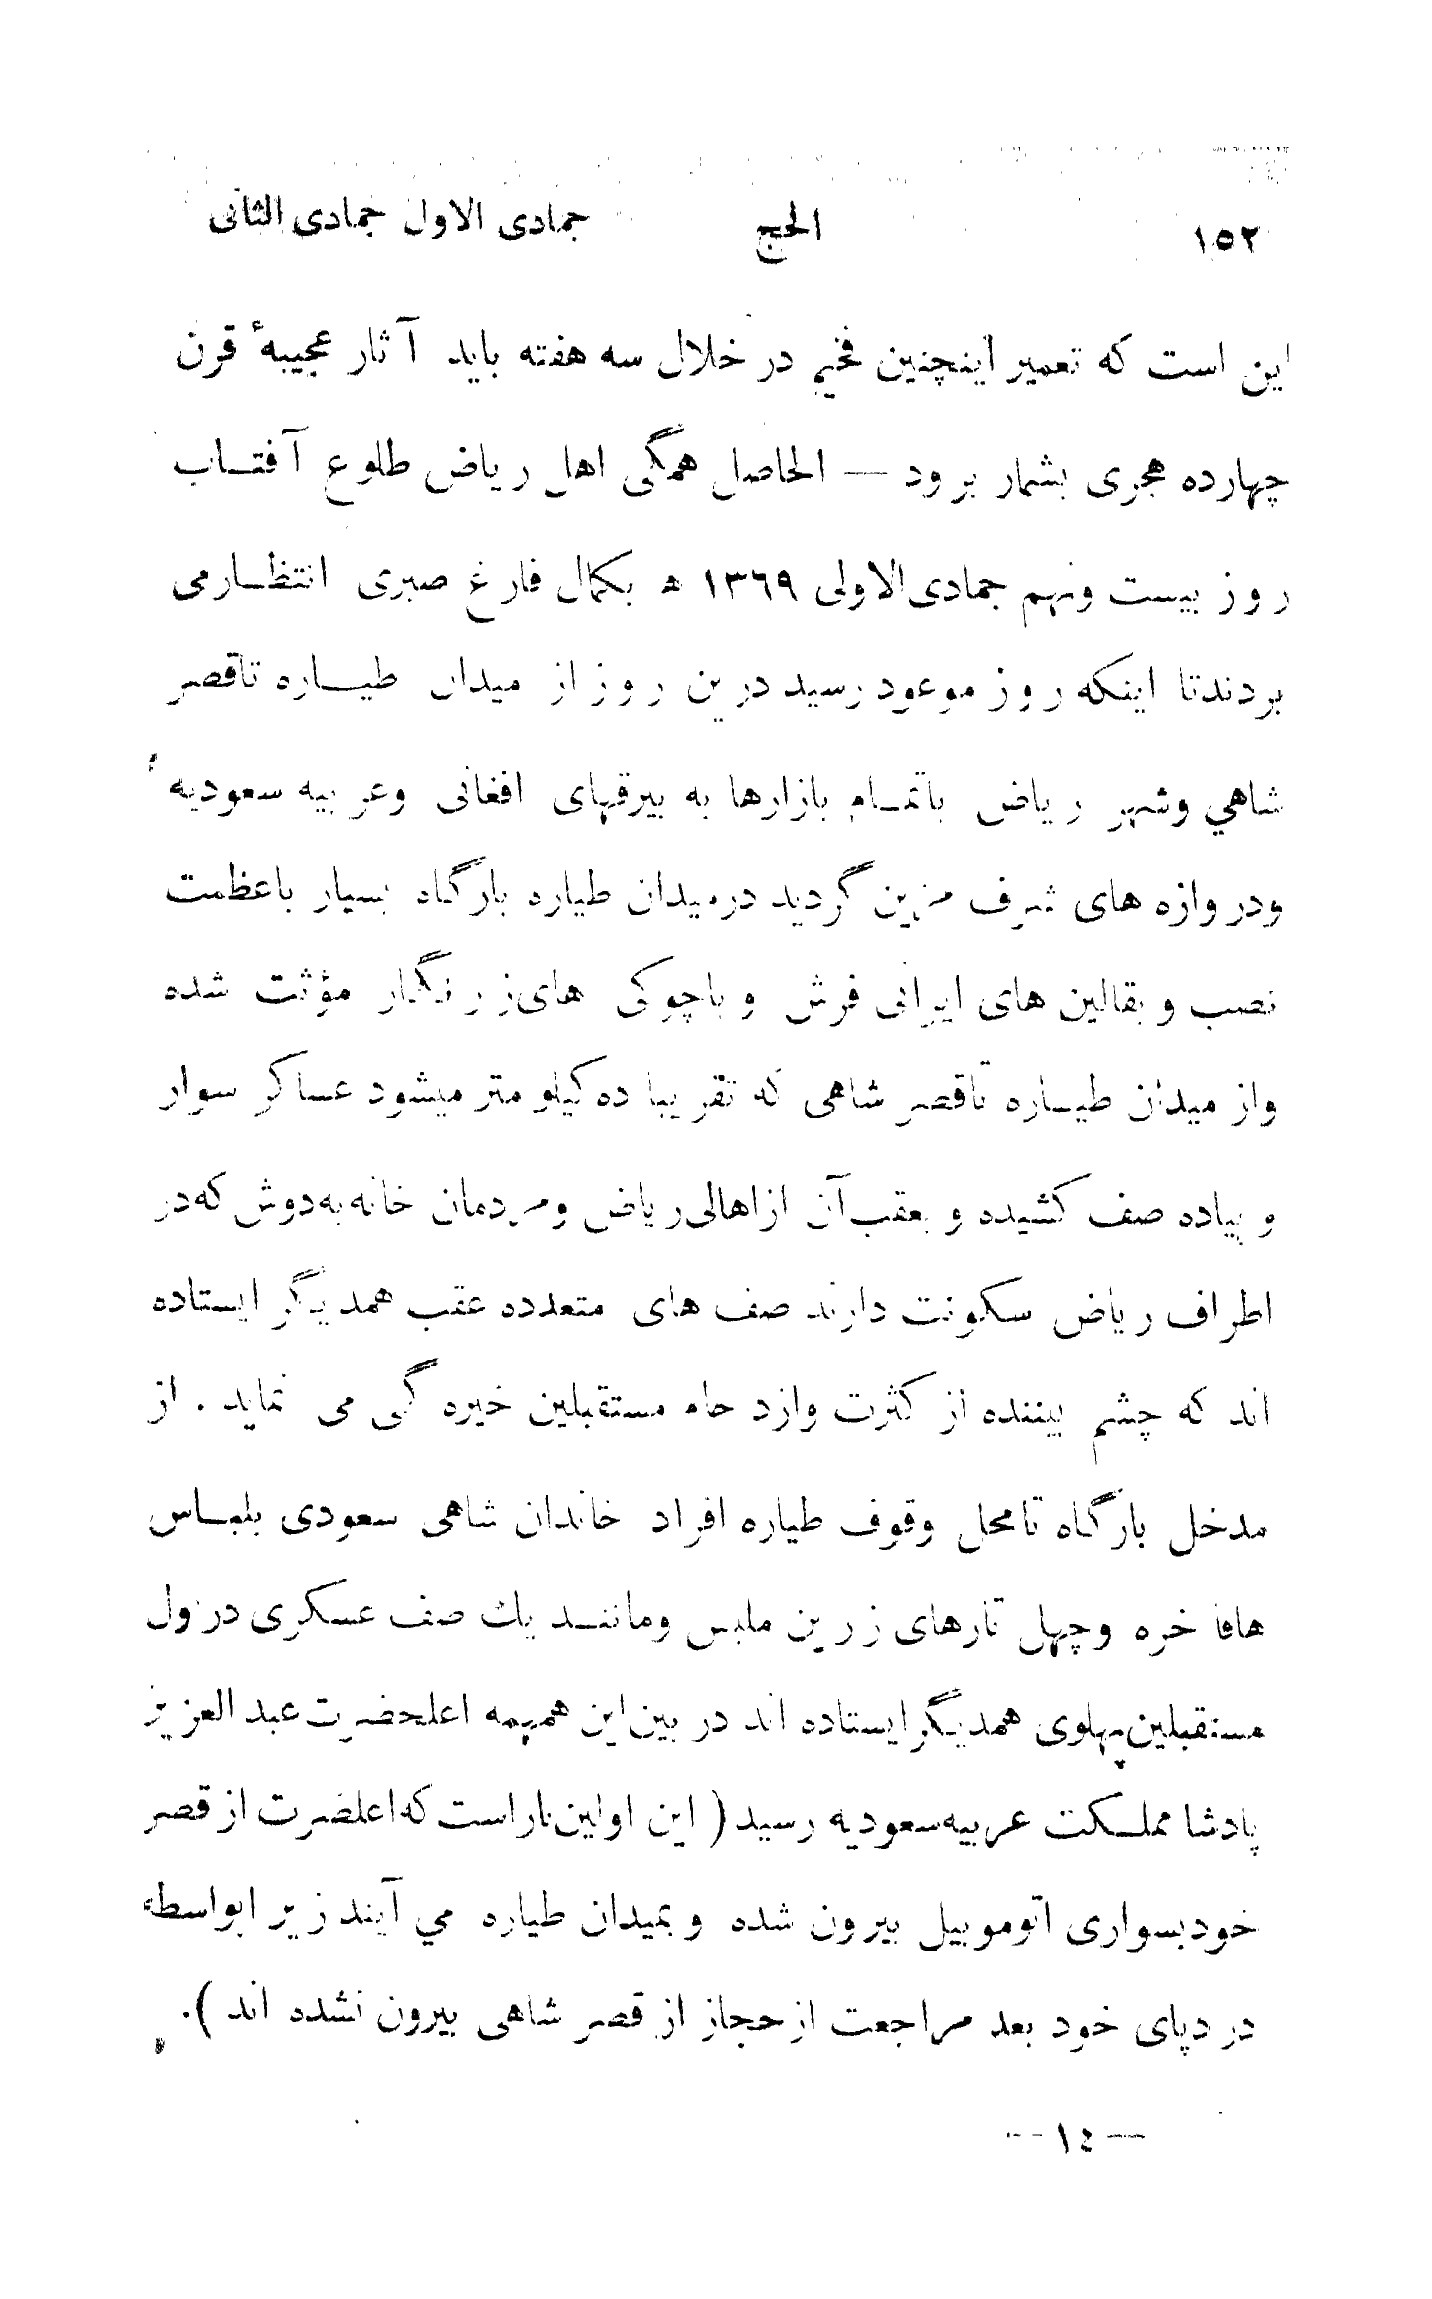 ١٥٢ الحج جمادی الاول جمادی الثانی
این است که تعمیر اینچنین فخیم در خلال سه هفته باید آثار عجیبهٔ قرن
چهارده هجری بشمار برود — الحاصل همگی اهل ریاض طلوع آفتاب
روز بیست ونهم جمادی الاولی ١٣٦٩ ھ بکمال فارغ صبری انتظارمی
بردندتا اینکه روز موعود رسید درین روز از میدان طیاره تاقصر
شاهي وشهر ریاض باتمام بازارها به بیرقهای افغانی وعربیه سعودیه
ودروازه های شرف مزین گردید درمیدان طیاره بارگاه بسیار باعظمت
نصب و بقالین های ایرانی فرش و باچوکی های زرنگار مؤثث شده
واز میدان طیاره تاقصر شاهی که تقریبا ده کیلو متر میشود عساکر سوار
و پیاده صف کشیده و بعقب آن ازاهالی ریاض ومردمان خانه به دوش که در
اطراف ریاض سکونت دارند صف های متعدده عقب همدیگر ایستاده
اند که چشم بیننده از کثرت وازد حام مستقبلین خیره گی می نماید . از
مدخل بارگاه تامحل وقوف طیاره افراد خاندان شاهی سعودی بلباس
هافا خره وچهل تارهای زرین ملبس ومانند یك صف عسکری در رول
مستقبلین پهلوی همدیگر ایستاده اند در بین این همهمه اعلحضرت عبد العزیز
پادشا مملکت عربیه سعودیه رسید ( این اولین بار است که اعلضرت از قصر
خودبسواری اتوموبیل بیرون شده و بمیدان طیاره مي آیند زیر ابواسطه
در دپای خود بعد مراجعت از حجاز از قصر شاهی بیرون نشده اند ) .
— ١٤ —